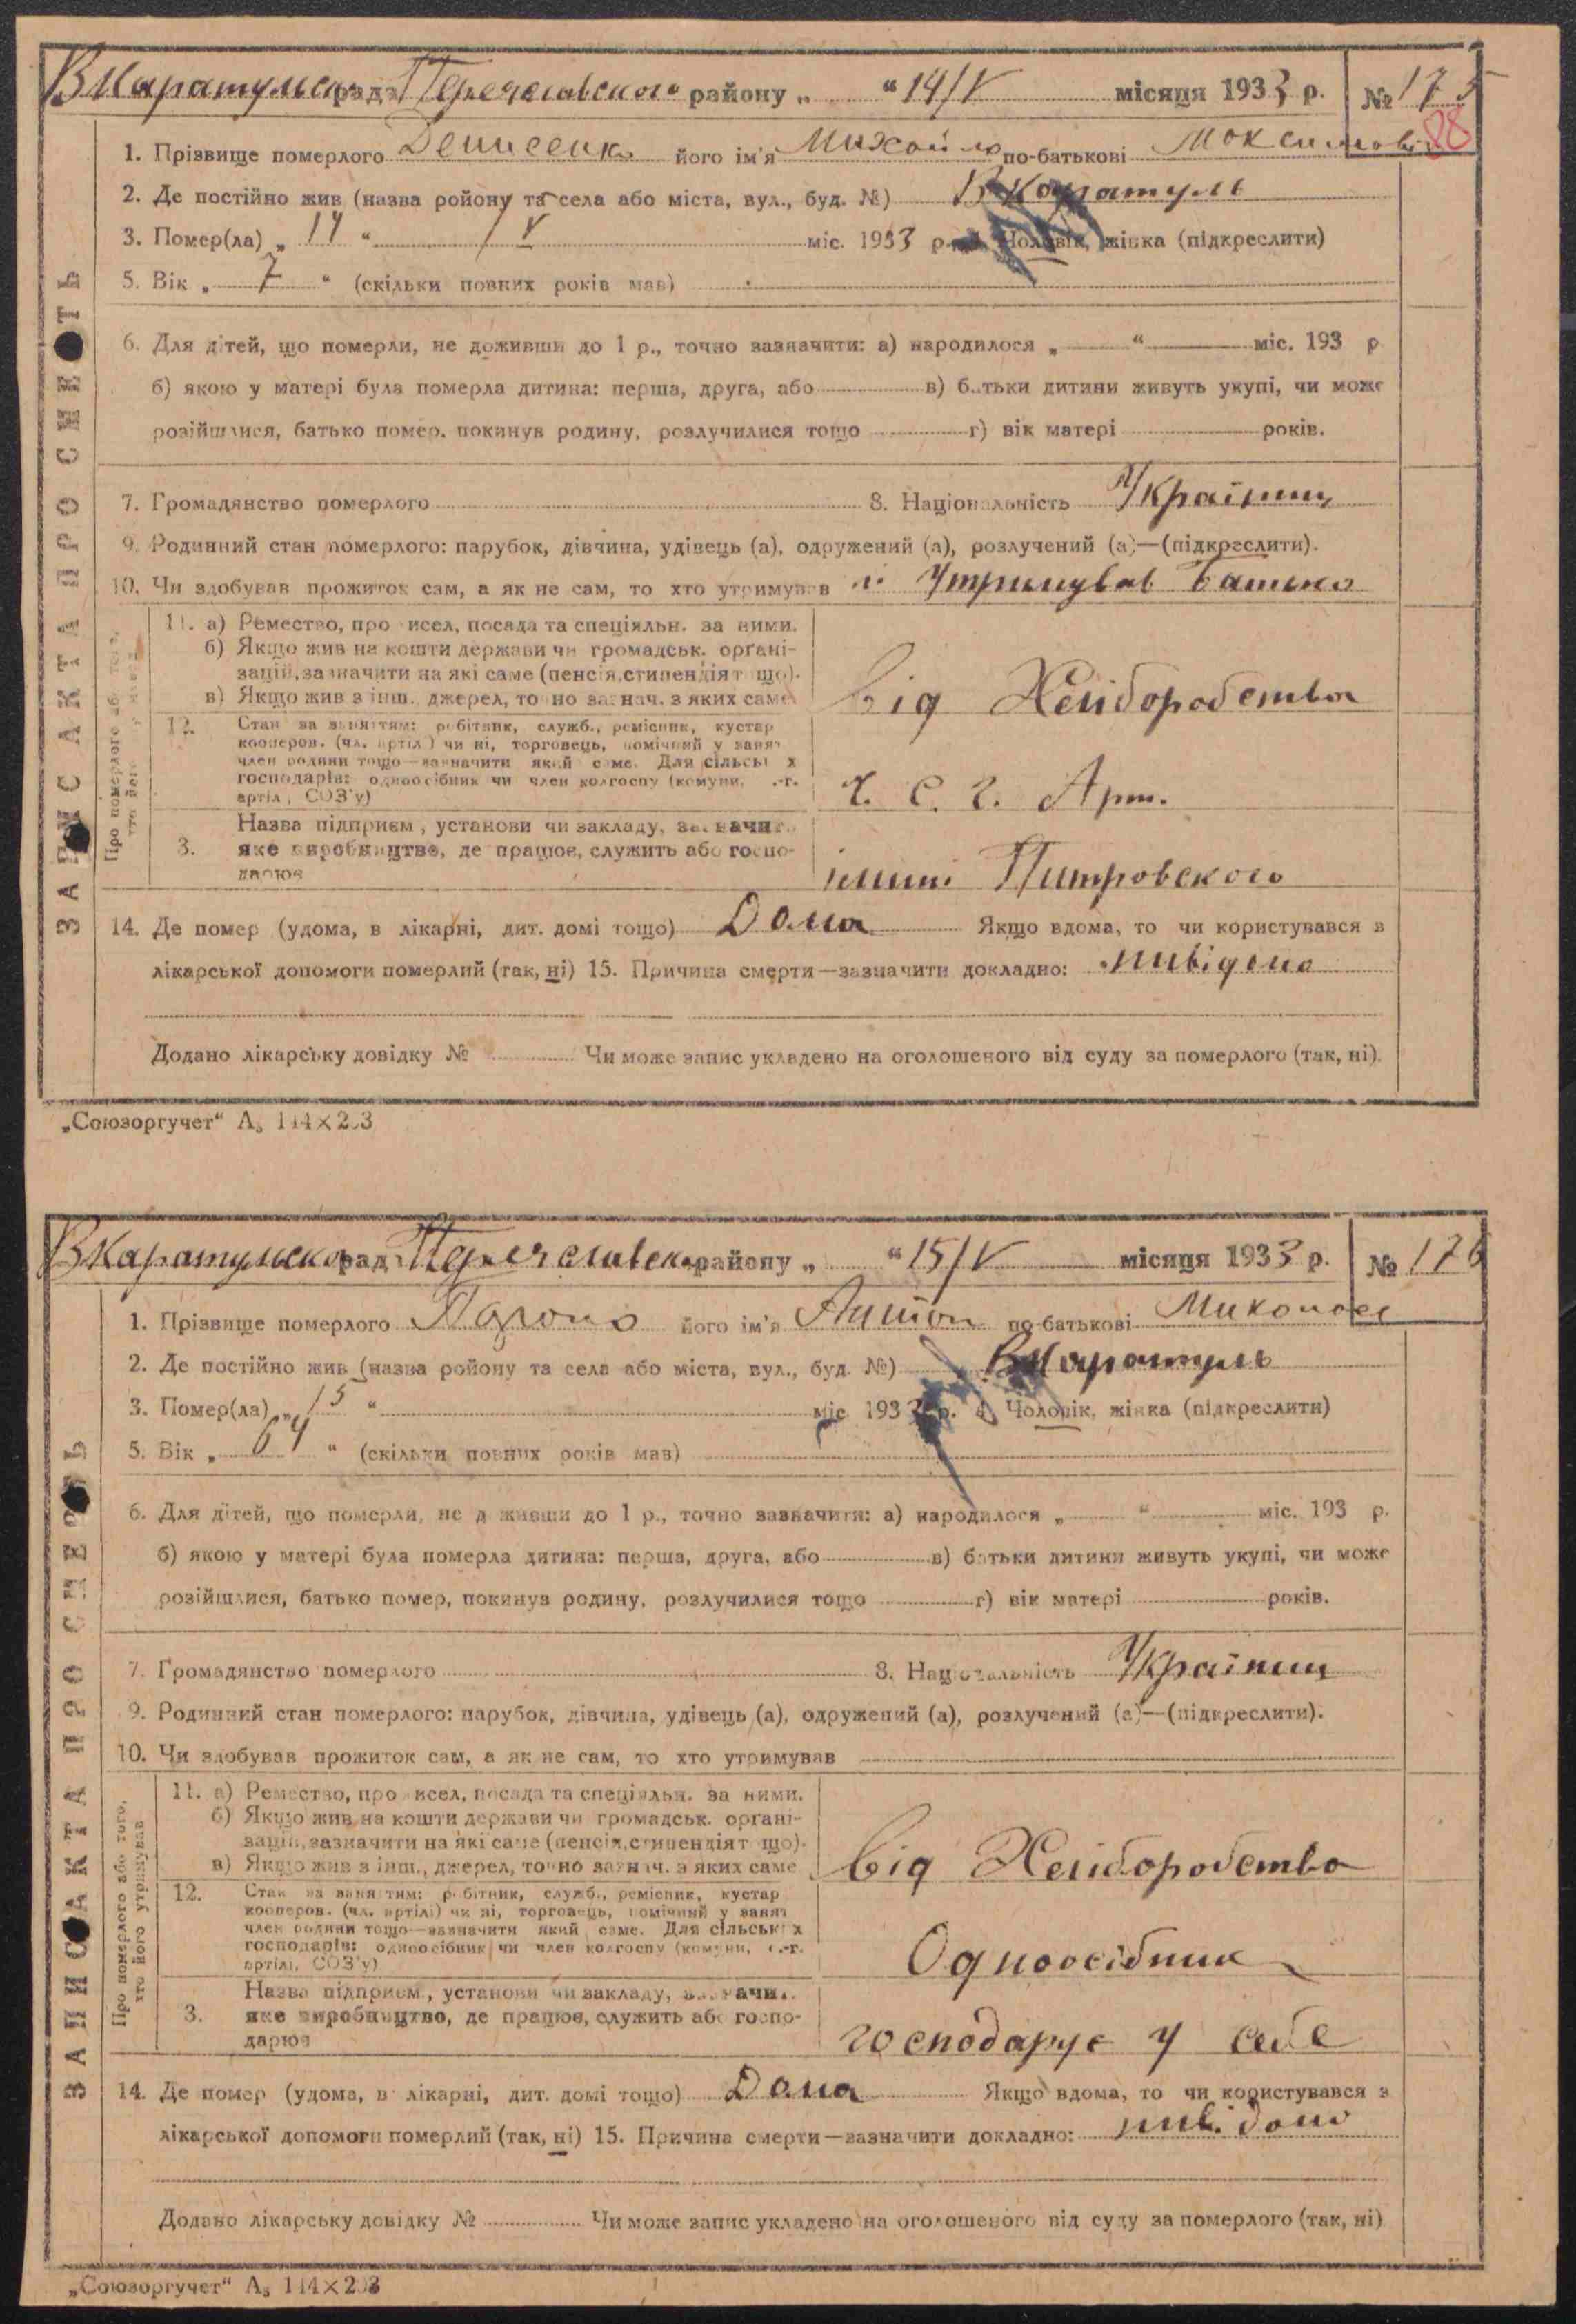 ВКаратульська рада Переяславского району „ “ 14/V місяця 1933 р. № 175
88
1. Прізвище померлого Денисенко його ім'я Михайло по-батькові Максимов
2. Де постійно жив (назва ройону та села або міста, вул., буд. №) ВКаратуль
3. Помер(ла) „ 14 “ / V міс. 1933 р. Чоловік, жінка (підкреслити)
5. Вік „ 7 “ (скільки повних років мав)
6. Для дітей, що померли, не доживши до 1 р., точно зазначити: а) народилося „ “ міс. 193 р
б) якою у матері була померла дитина: перша, друга, або в) батьки дитини живуть укупі, чи може
розійшлися, батько помер, покинув родину, розлучилися тощо г) вік матері років.
7. Громадянство померлого 8. Національність Українец
9. Родинний стан померлого: парубок, дівчина, удівець (а), одружений (а), розлучений (а)—(підкреслити).
10. Чи здобував прожиток сам, а як не сам, то хто утримував Утримував Батько
11. а) Ремество, про исел, посада та спеціяльн. за ними.
б) Якщо жив на кошти держави чи громадськ. органі-
зацій, зазначити на які саме (пенсія, стипендія т що).
в) Якщо жив з інш. джерел, точно зазнач. з яких саме
від Хеліборобства
12. Стан за заняттям: робітник, служб., ремісник, кустар
кооперов. (чл. артілі) чи ні, торговець, помічний у занят
член родини тощо—зазначити який саме. Для сільських
господарів: одноосібник чи член колгоспу (комуни, с.-г.
артіл, СОЗ'у)
Ч. С. Г. Арт.
3. Назва підприєм, установи чи закладу, зазначить
яке виробництво, де працює, служить або госпо-
дарює
імині Питровского
14. Де помер (удома, в лікарні, дит. домі тощо) Дома Якщо вдома, то чи користувався з
лікарської допомоги померлий (так, ні) 15. Причина смерти—зазначити докладно: нивідомо
Додано лікарську довідку № Чи може запис укладено на оголошеного від суду за померлого (так, ні).
ЗАПИС АКТА ПРО СМЕРТЬ
Про померлого або того,
хто його
„Союзоргучет“ А₅ 144×203
ВКаратульско рада Переяславско району „ “ 15/V місяця 1933 р. № 176
1. Прізвище померлого його ім'я Антон по-батькові Миколове
2. Де постійно жив (назва ройону та села або міста, вул., буд. №) ВКаратуль
3. Помер(ла) „ 15 “ міс 1933 р. 4. Чоловік, жінка (підкреслити)
5. Вік „ 64 “ (скільки повних років мав)
6. Для дітей, що померли, не доживши до 1 р., точно зазначити: а) народилося „ “ міс. 193 р.
б) якою у матері була померла дитина: перша, друга, або в) батьки дитини живуть укупі, чи може
розійшлися, батько помер, покинув родину, розлучилися тощо г) вік матері років.
7. Громадянство померлого 8. Національність Українец
9. Родинний стан померлого: парубок, дівчина, удівець (а), одружений (а), розлучений (а)—(підкреслити).
10. Чи здобував прожиток сам, а як не сам, то хто утримував
11. а) Ремество, про исел, посада та спеціяльн. за ними.
б) Якщо жив на кошти держави чи громадськ. органі-
зацій, зазначити на які саме (пенсія, стипендія т що).
в) Якщо жив з інш., джерел, точно зазнач. з яких саме
від Хеліборобства
12. Стан за заняттям: робітник, служб., ремісник, кустар
кооперов. (чл. артілі) чи ні, торговець, помічний у занят
член родини тощо—зазначити який саме. Для сільських
господарів: одноосібник чи член колгоспу (комуни, с.-г.
артілі, СОЗ'у)
Одноосібник
3. Назва підприєм, установи чи закладу, зазначить
яке виробництво, де працює, служить або госпо-
дарює
господарує у себе
14. Де помер (удома, в лікарні, дит. домі тощо) Дома Якщо вдома, то чи користувався з
лікарської допомоги померлий (так, ні) 15. Причина смерти—зазначити докладно: нивідомо
Додано лікарську довідку № Чи може запис укладено на оголошеного від суду за померлого (так, ні)
ЗАПИС АКТА ПРО СМЕРТЬ
Про померлого або того,
хто його утримував
„Союзоргучет“ А₅ 144×203